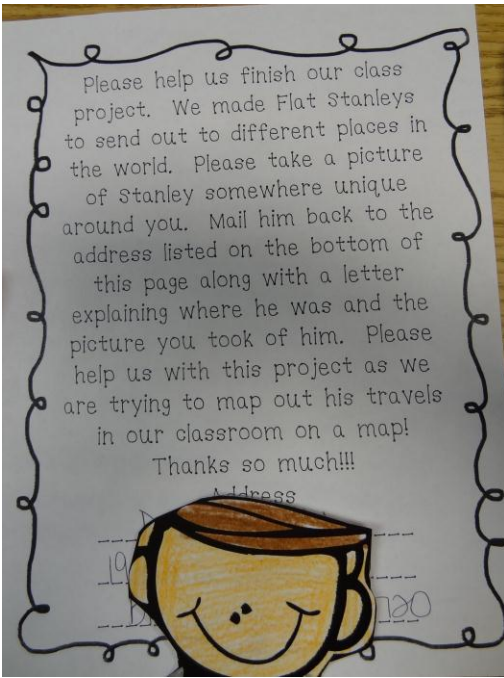 Please help us finish our class
project. We made Flat Stanleys
to send out to different places in
the world. Please take a picture
of Stanley somewhere unique
around you. Mail him back to the
address listed on the bottom of
this page along with a letter
explaining where he was and the
picture you took of him. Please
help us with this project as we
are trying to map out his travels
in our classroom on a map!
Thanks so much!!!
Address